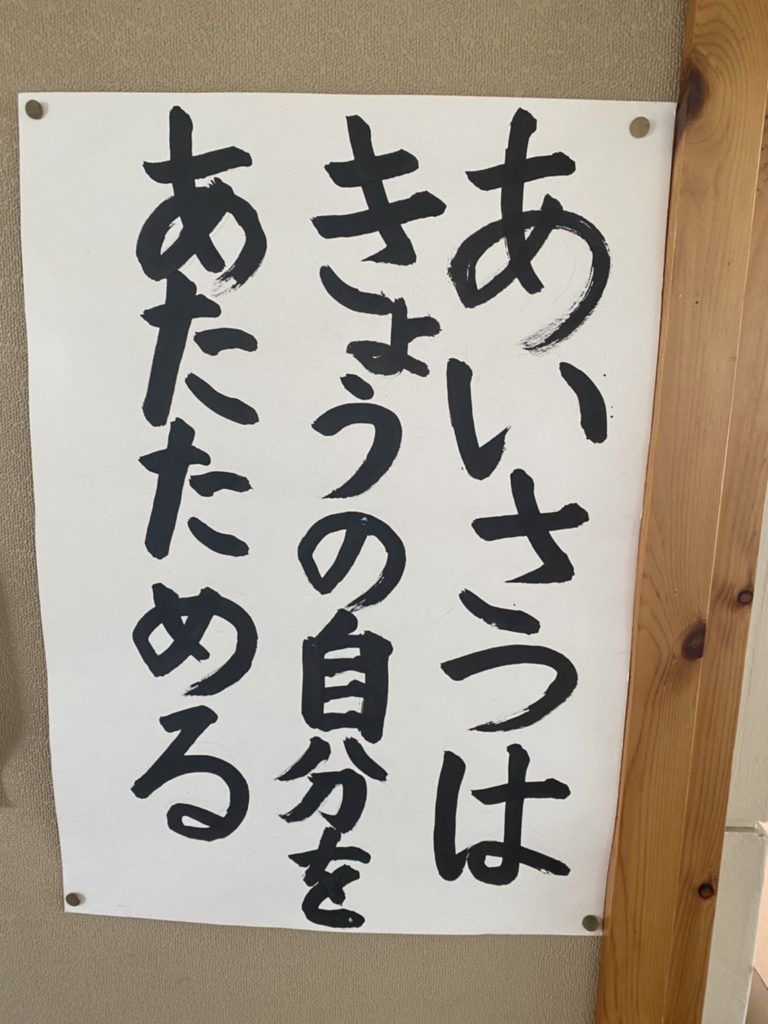 あいさつは
きょうの自分を
あたためる